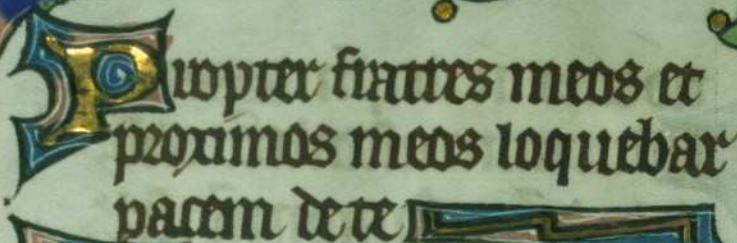 Propter fratres meos et
proximos meos loquebar
pacem de te